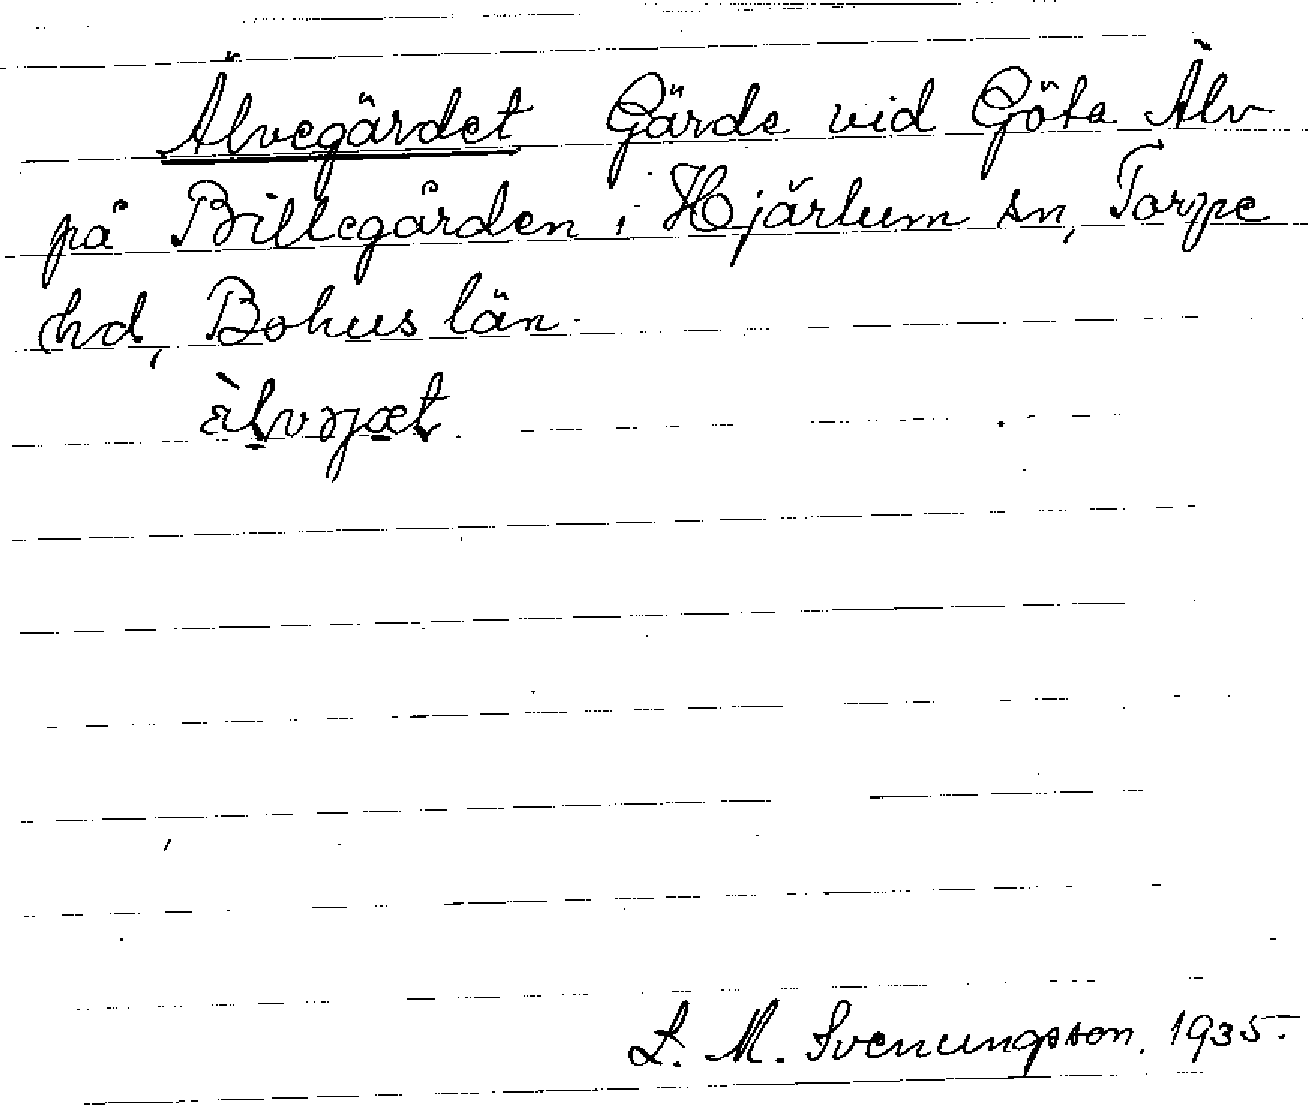 Älvegärdet Gärde vid Göta Älv
på Billegården i Hjärtum sn, Torpe
hd, Bohus län
L. M. Svenungsson. 1935.